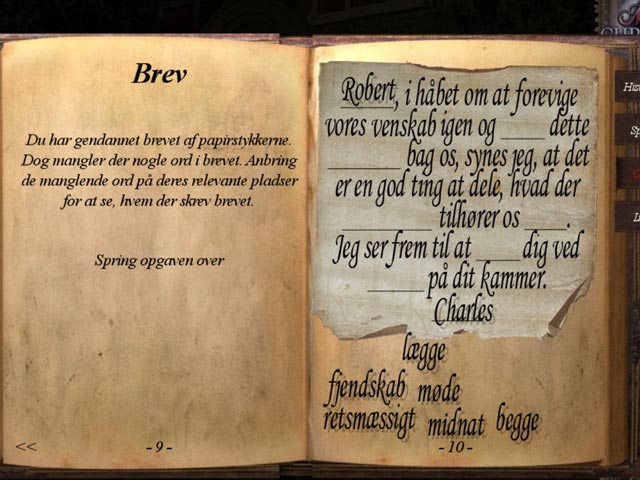 Brev
Du har gendannet brevet af papirstykkerne.
Dog mangler der nogle ord i brevet. Anbring
de manglende ord på deres relevante pladser
for at se, hvem der skrev brevet.
Spring opgaven over
<<
- 9 -
Robert, i håbet om at forevige
vores venskab igen og _____ dette
________ bag os, synes jeg, at det
er en god ting at dele, hvad der
_________ tilhører os ____.
Jeg ser frem til at ____ dig ved
______ på dit kammer.
Charles
lægge
fjendskab møde
retsmæssigt midnat begge
- 10 -